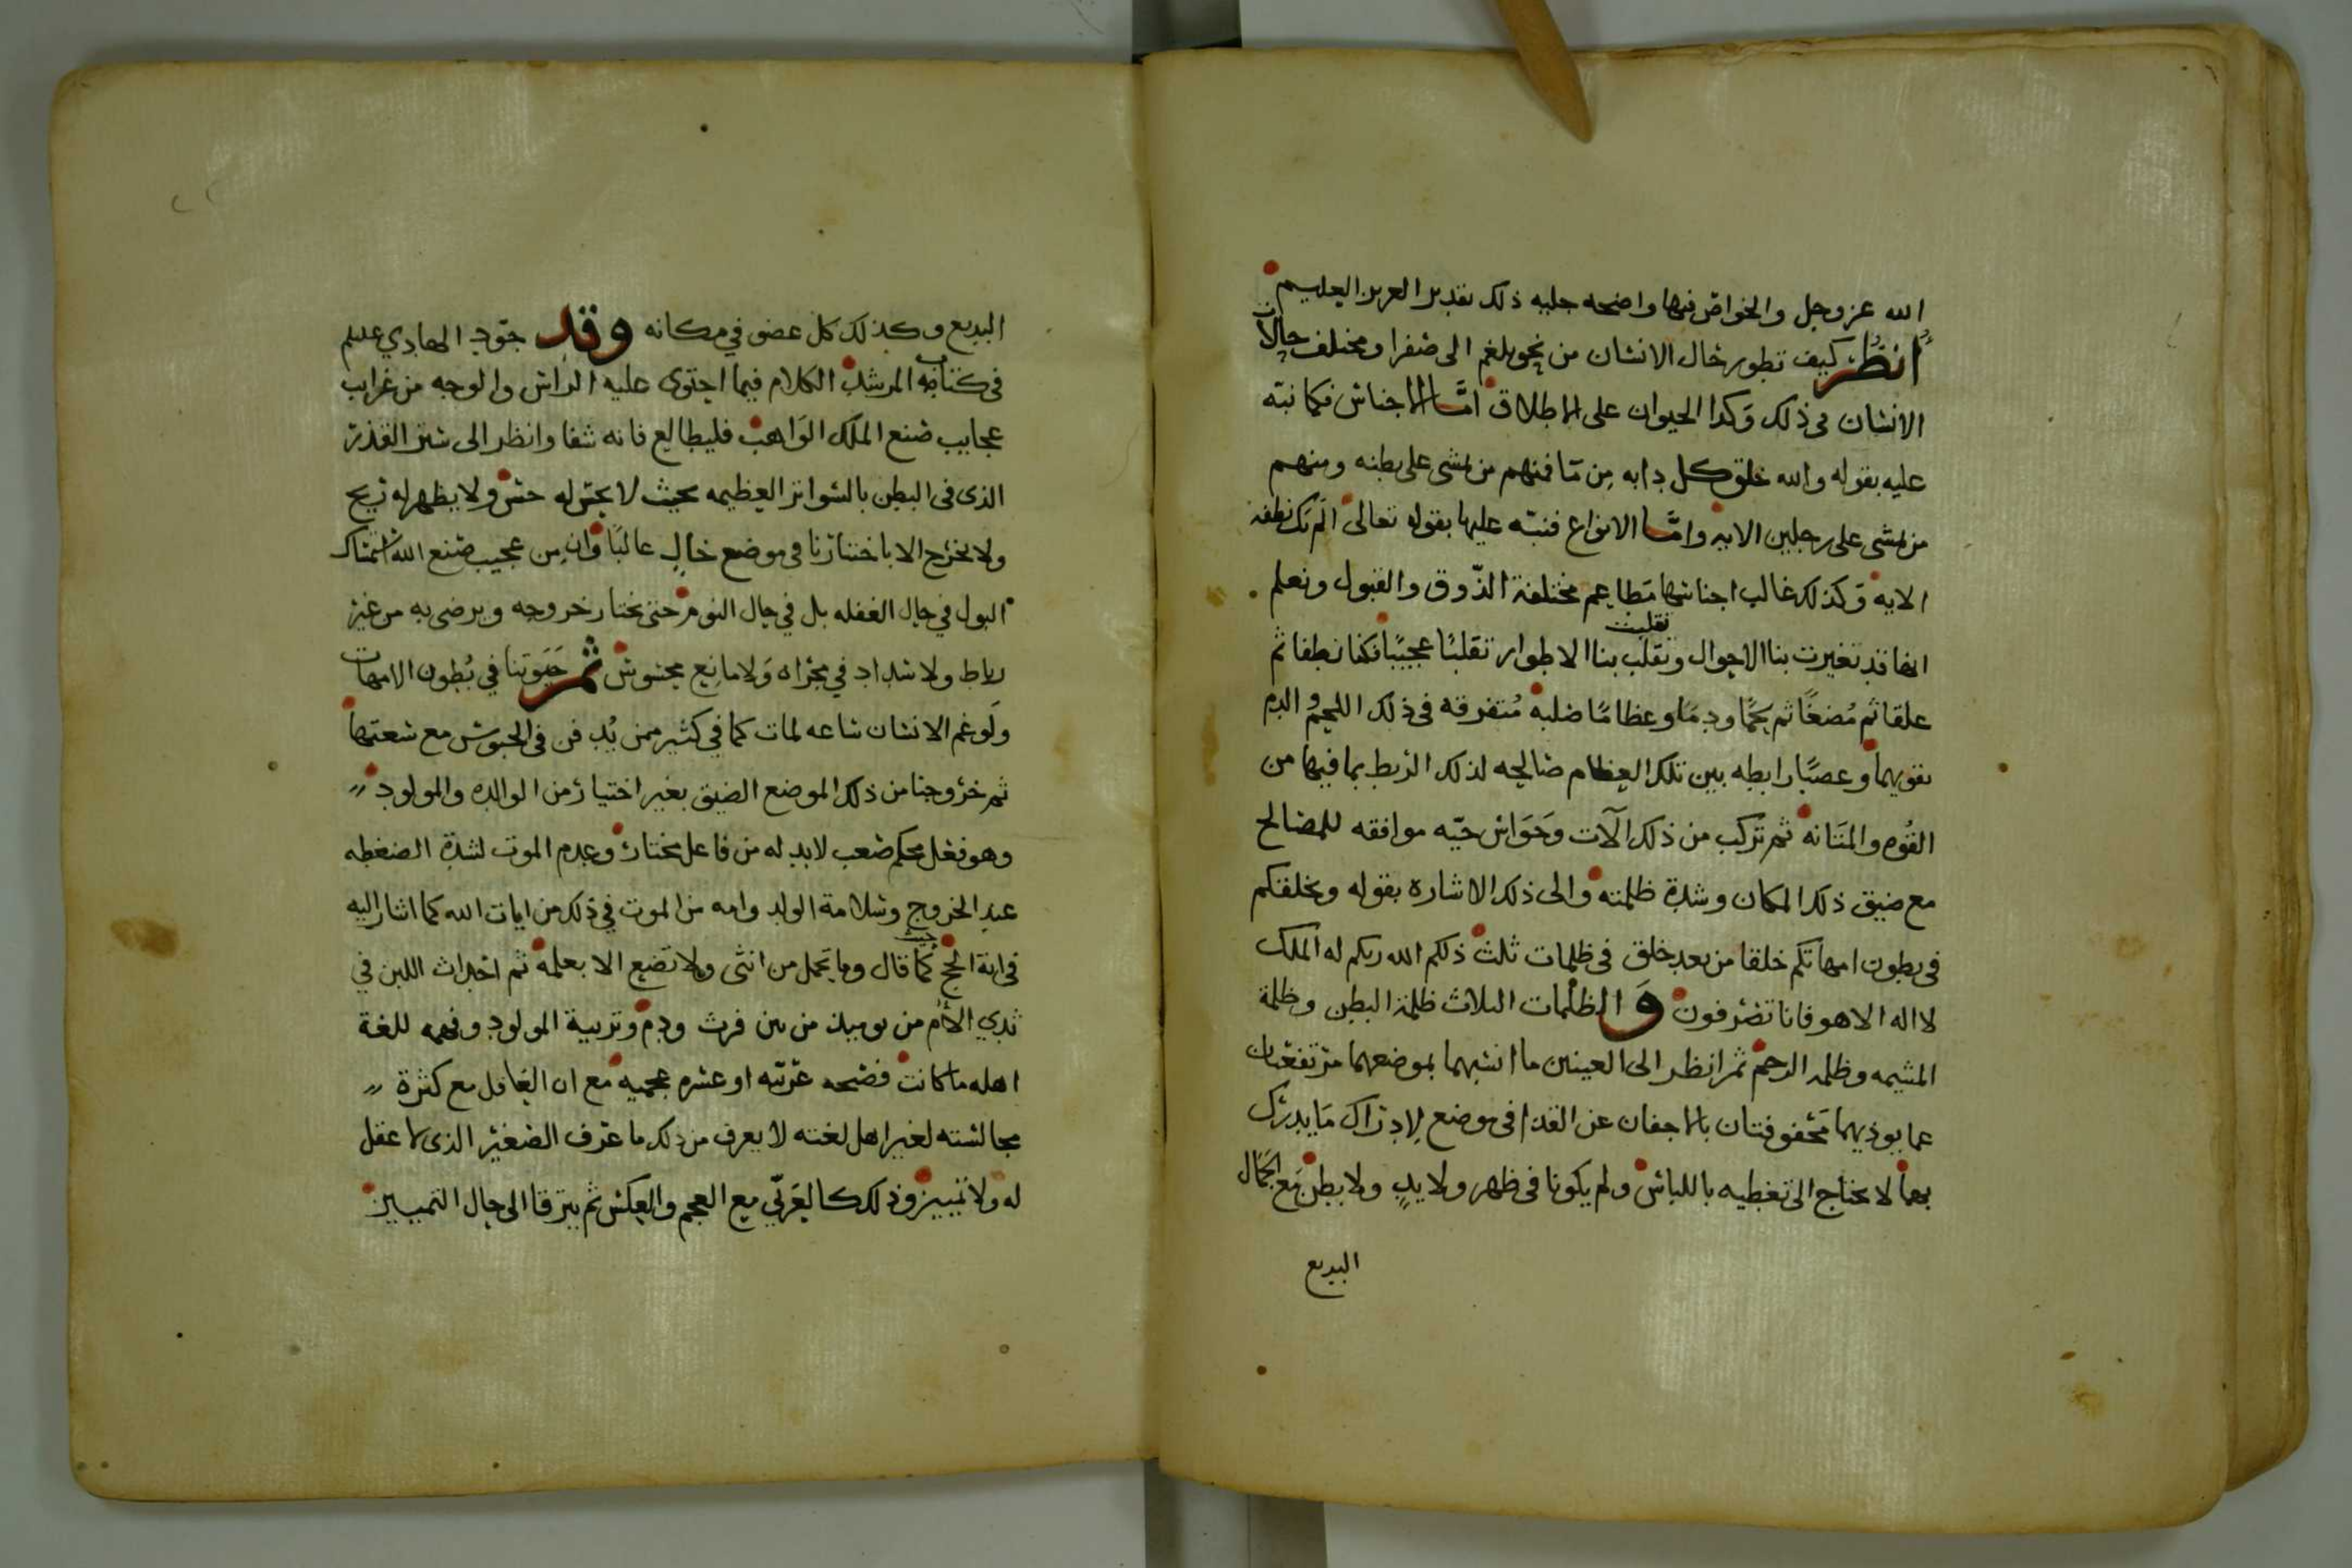 الله عز وجل والخواص فيها واضحه جليه ذلك تقدير العزيز العليم
انظر كيف تطور حال الانسان من نحو بلغم الى صفرا ومختلف حالات
الانسان في ذلك وكذا الحيوان على الاطلاق امّا الاجناس فكما نبّه
عليه بقوله والله خلق كل دابه من مّا فمنهم من يمشى على بطنه ومنهم
من يمشى على رجلين الايه وامّا الانواع فنبّه عليها بقوله تعالى الم تك نطفة
الايه وكذلك غالب اجناسها مطاعم مختلفة الذّوق والقبول ونعلم
انها قد تغيرت بنا الاحوال وتقلب تقلبت بنا الاطوار تقلبًا عجيبًا فكنا نطفا ثم
علقا ثم مُضغًا ثم لحمًا ودمًا وعظامًا صلبة مُتفرقه فى ذلك اللحمُ الدم
نقويهما وعصبًا رابطه بين تلك العظام صالحه لذلك الربط بما فيها من
القُوه والمتانه ثم تركب من ذلك آلآت وحَوَاس حيّه موافقه للمصالح
مع ضيق ذلك المكان وشدة ظلمته والى ذلك الاشاره بقوله ويخلقكم
فى بطون امهاتكم خلقا من بعد خلق فى ظلمات ثلث ذلكم الله ربكم له الملك
لا اله الا هو فانا تصرفون وَ الظلمات الثلاث ظلمة البطن وظلمة
المشيمه وظلمه الرحم ثم انظر الى العينين ما انسبهما بموضعهما مرتفعتان
عما يوذيهما محفوفتان بالاجفان عن القذا فى موضع لادراك مَا يدرك
بهما لا يحتاج الى تغطيه باللباس ولم يكونا فى ظهر ولا يدٍ ولا بطن مَع الجَمال
البديع
البديع وكذلك كل عضو في مكانه وقد جوّد الهادي عليلم
فى كتابه المرشد الكلام فيما احتوى عليه الراس والوجه من غرايب
عجايب صنع الملك الوَاهب فليطالع فانه شفا وانظر الى ستر القذر
الذى فى البطن بالسواتر العظيمه بحيث لا يحسّ له حسّ ولا يظهر له ريح
ولا يخرج الا باختيارنا فى موضع خالٍ غالبًا وان من عجيب صنع الله استمساك
البول في حال الغفله بل في حال النوم حتى نختار خروجه ونرضى به من غير
رباط ولا سداد في مجراه وَلا مانع محسوس ثم حيوتنا في بُطون الامهات
ولَو غم الانسان ساعه لمات كما في كثير ممن يُدفن فى الحبوس مع سعتها
ثم خرُوجنا من ذلك الموضع الضيق بغير اختيار من الوالده والمولود
وهو فعل محكم صعب لا بد له من فاعل مختار وعدم الموت لشدة الضغطه
عند الخروج وسلامة الولد وامه من الموت في ذلك من ايات الله كما اشار اليه
فى اية الحج حيث كما قال وما تحمل من انثى ولا تضع الا بعلمه ثم احداث اللبن في
ثدي الاُم من يوميذ من بين فرث ودم وتربية المولود وفهمه للغة
اهله ما كانت فصيحه عربيّه او عسره عجميه مع ان العاقل مع كثرة
مجالسته لغير اهل لغته لا يعرف من ذلك ما عرف الصغير الذى لا عقل
له ولا تمييز وذلك كالعَربّي مع العجم والعكس ثم يترقا الى حال التمييز